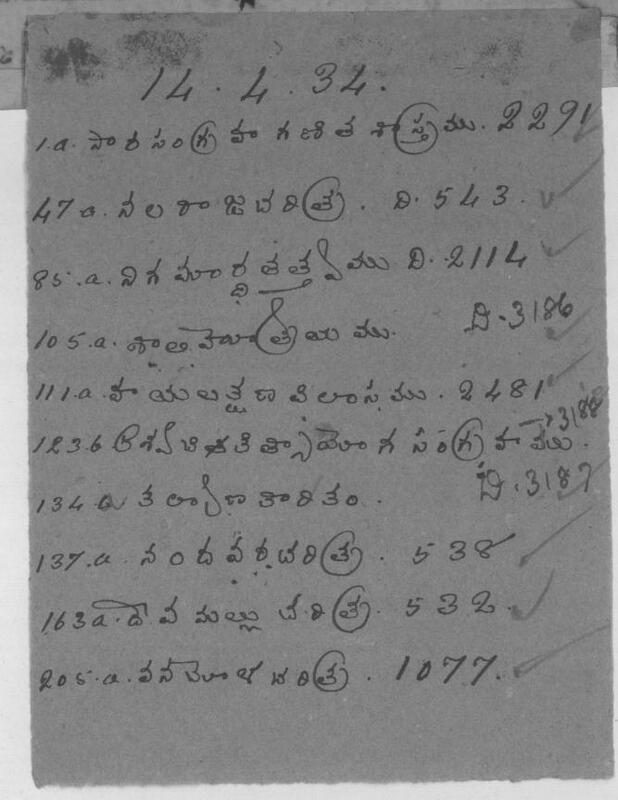 14.4.34.
1.a. సారసంగ్రహగణితశాస్త్రము. 2291
47a. నలరాజచరిత్ర. ది. 543.
85.a. నిగమార్థతత్త్వము ది. 2114
105.a. ది. 3186
111.a. హయలక్షణవిలాసము. 2481
123.b సంగ్రహము. → 3188
134a కల్యాణకారితం. ది. 3187
137.a. నందవరచరిత్ర. 538
163a. దేవమల్లుచరిత్ర. 532.
205.a. చరిత్ర. 1077.